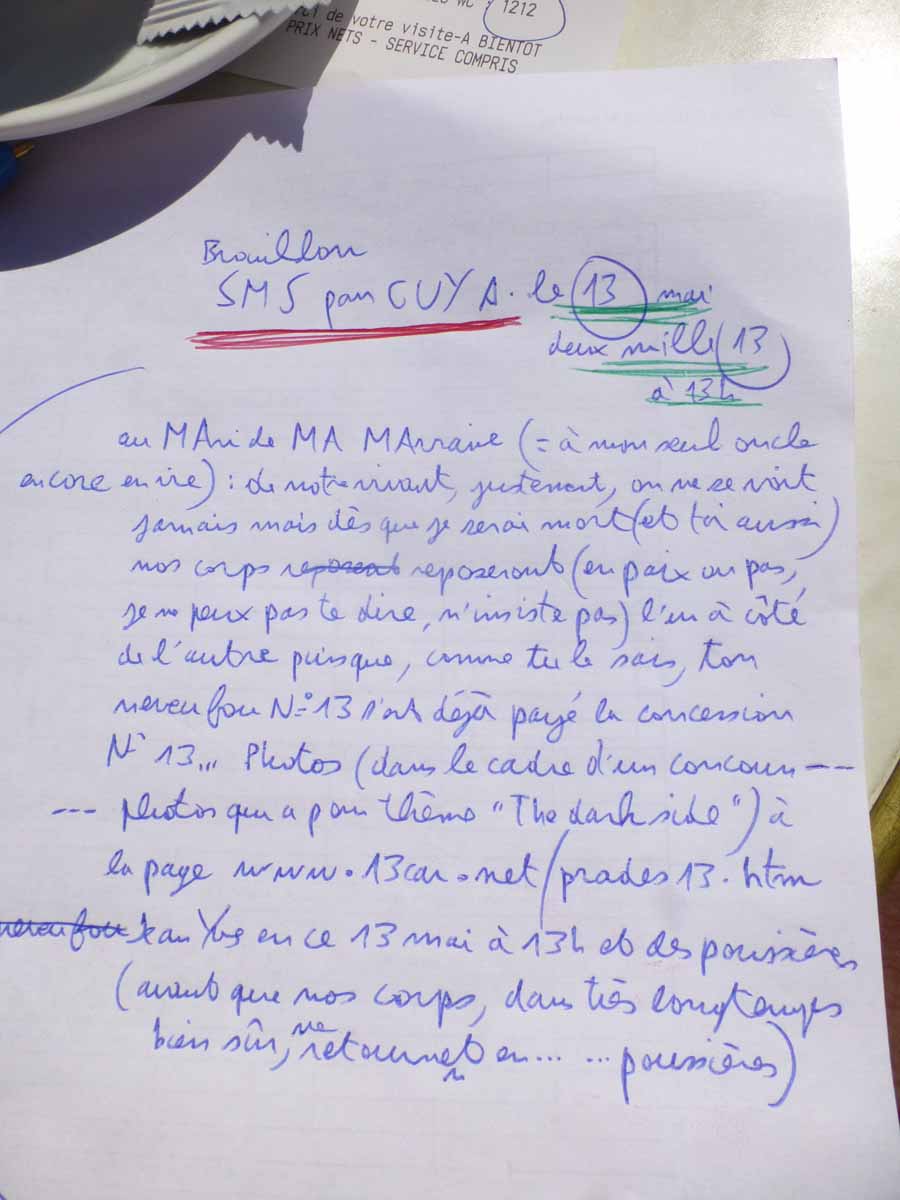 WC : 1212
de votre visite-A BIENTOT
PRIX NETS - SERVICE COMPRIS
Brouillon
SMS pour GUY A. le 13 mai
deux mille 13
à 13h
au MAri de MA MArraine (= à mon seul oncle
encore en vie) : de notre vivant, justement, on ne se voit
jamais mais dès que je serai mort (et toi aussi)
nos corps reposent reposeront (en paix ou pas,
je ne peux pas te dire, n'insiste pas) l'un à côté
de l'autre puisque, comme tu le sais, ton
neveu fou N° 13 s'est déjà payé la concession
N° 13... Photos (dans le cadre d'un concours ---
--- photos qui a pour thème "The dark side") à
la page www.13car.net/prades13.htm
neveu fou Jean Yves en ce 13 mai à 13h et des poussières
(avant que nos corps, dans très longtemps
bien sûr, ne retournent en... ... poussières)